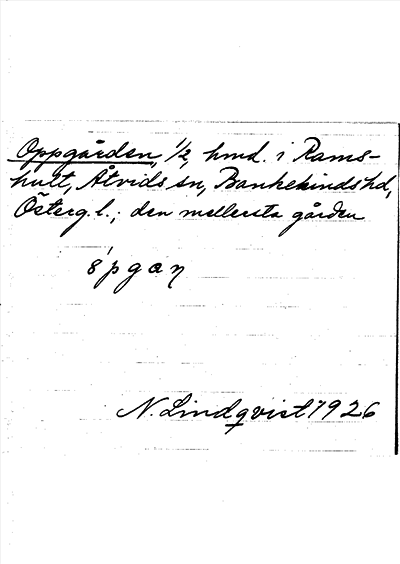 Oppgården, 1/2, hmd. i Rams-
hult, Åtvids sn, Bankekinds hd,
Österg. l.; den mellersta gården
N. Lindqvist 1926